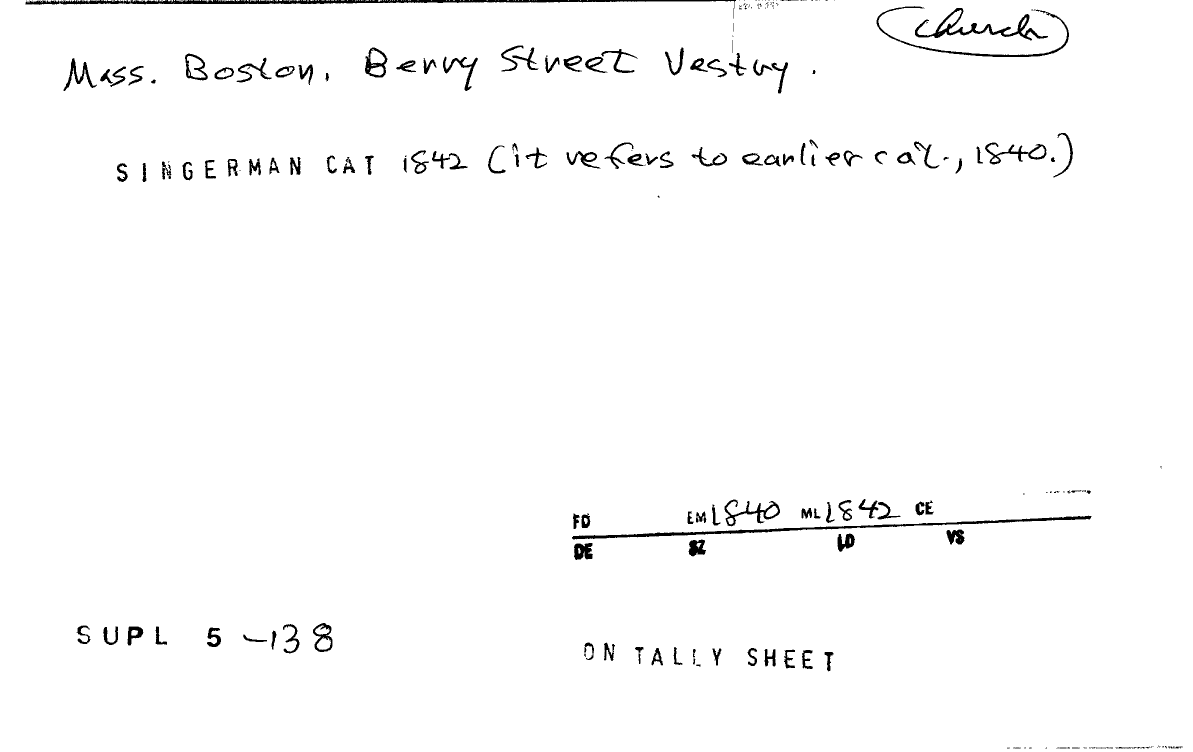 Church
Mass. Boston. Berry Street Vestry.
SINGERMAN CAT 1842 (it refers to earlier cat., 1840.)
FD EM 1840 ML 1842 CE
DE SZ LD VS
SUPL 5 -138
ON TALLY SHEET